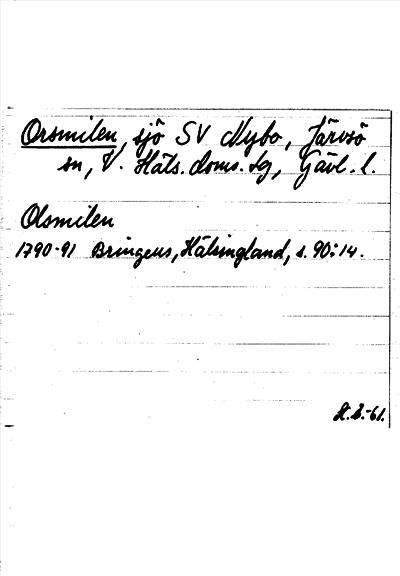 Orsmilen, sjö SV Nybo, Järvsö
sn, V. Häls. doms. sg, Gävl. l.
Olsmilen
1790-91 Bringéus, Hälsingland, s. 90:14.
-61.